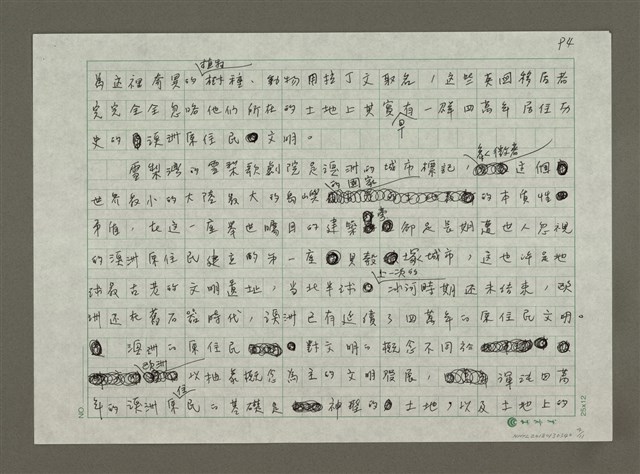 P4
植物
為這裡奇異的樹種、動物用拉丁文取名，這些英國移居者
完完全全忽略他們所在的土地上其實有一群四萬年居住歷
早
史的澳洲原住民文明。
象徵着
雪梨灣的雪梨歌劇院是澳洲的城市標記，這個
的國家
世界最小的大陸最大的島嶼的本質性
市值，在這一座舉世矚目的建築卻是長期遭世人忽視
的澳洲原住民建立的第一座貝殼塚城市，這也許是地
上一次的
球最古老的文明遺址，當北半球冰河時期還未結束，歐
洲還在舊石器時代，澳洲已有延續了四萬年的原住民文明。
澳洲的原住民對文明的概念不同於
歐洲
以地景概念為主的文明發展，渾沌四萬
住
年的澳洲原民的基礎是神聖的土地，以及土地上的
NO.
25x12